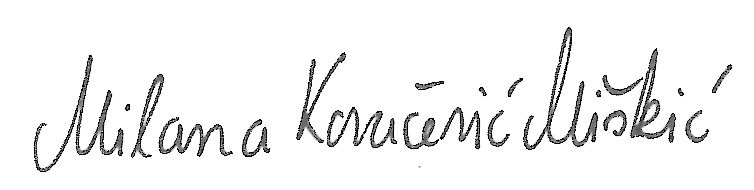 Milana Kovačević Miškić